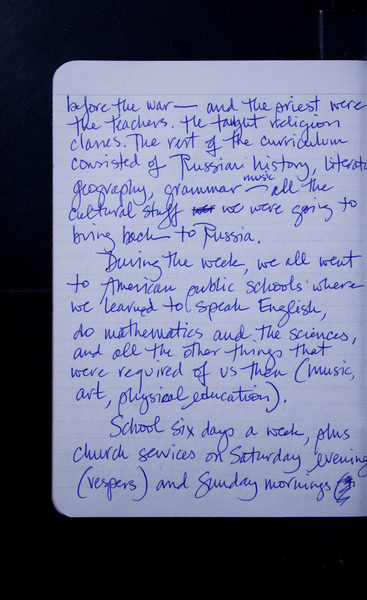 before the war — and the priest were
the teachers. He taught religion
classes. The rest of the curriculum
consisted of Russian history, literatu
geography, grammar music — all the
cultural stuff we were going to
bring back to Russia.
During the week, we all went
to American public schools where
we learned to speak English,
do mathematics and the sciences,
and all the other things that
were required of us then (music,
art, physical education).
School six days a week, plus
church services on Saturday evening
(vespers) and Sunday mornings